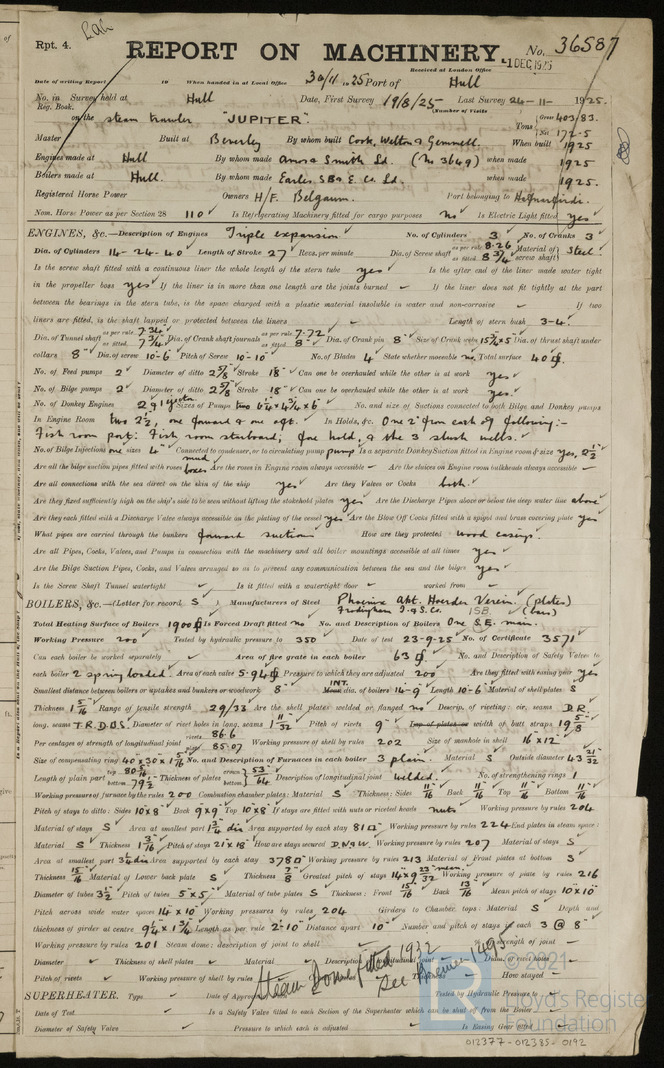 Rpt. 4.
REPORT ON MACHINERY. No. 36587
Received at London Office 1 DEC 1925
Date of writing Report 19 When handed in at Local Office 30/11 1925 Port of Hull
No. in Survey held at Hull Date, First Survey 19/8/25 Last Survey 24-11- 1925.
Reg. Book. (Number of Visits
on the steam trawler "JUPITER" Tons Gross 403.83. Net 172.5
Master Built at Beverley By whom built Cook, Welton & Gemmell. When built 1925
Engines made at Hull By whom made Amos & Smith Ld. (No 3649) when made 1925
Boilers made at Hull. By whom made Earles SB & E. Co. Ld. when made 1925.
Registered Horse Power Owners H/F. Belgaum. Port belonging to Hafnarfirdi.
Nom. Horse Power as per Section 28 110 Is Refrigerating Machinery fitted for cargo purposes No Is Electric Light fitted yes
ENGINES, &c.—Description of Engines Triple expansion No. of Cylinders 3 No. of Cranks 3
Dia. of Cylinders 14-24-40 Length of Stroke 27 Revs. per minute Dia. of Screw shaft as per rule 8.26 as fitted 8 3/4 Material of screw shaft Steel.
Is the screw shaft fitted with a continuous liner the whole length of the stern tube yes Is the after end of the liner made water tight
in the propeller boss yes If the liner is in more than one length are the joints burned If the liner does not fit tightly at the part
between the bearings in the stern tube, is the space charged with a plastic material insoluble in water and non-corrosive If two
liners are fitted, is the shaft lapped or protected between the liners Length of stern bush 3-4.
Dia. of Tunnel shaft as per rule 7.34 as fitted 7 3/4 Dia. of Crank shaft journals as per rule 7.72 as fitted 8" Dia. of Crank pin 8" Size of Crank webs 15 3/4 x 5 Dia. of thrust shaft under
collars 8" Dia. of screw 10-6 Pitch of Screw 10-10 No. of Blades 4 State whether moveable no. Total surface 40
No. of Feed pumps 2 Diameter of ditto 2 5/8 Stroke 18" Can one be overhauled while the other is at work yes
No. of Bilge pumps 2 Diameter of ditto 2 5/8 Stroke 18" Can one be overhauled while the other is at work yes
No. of Donkey Engines 2 & 1 ejector Sizes of Pumps two 6 1/4 x 4 3/4 x 6 No. and size of Suctions connected to both Bilge and Donkey pumps
In Engine Room two 2 1/2, one forward & one aft. In Holds, &c. One 2" from each of following:-
Fish room port: Fish room starboard; fore hold, & the 3 slush wells.
No. of Bilge Injections one sizes 4" Connected to condenser, or to circulating pump pump Is a separate Donkey Suction fitted in Engine room & size yes, 2 1/2
Are all the bilge suction pipes fitted with roses mud boxes Are the roses in Engine room always accessible Are the sluices on Engine room bulkheads always accessible
Are all connections with the sea direct on the skin of the ship yes Are they Valves or Cocks both.
Are they fixed sufficiently high on the ship's side to be seen without lifting the stokehold plates yes Are the Discharge Pipes above or below the deep water line above
Are they each fitted with a Discharge Valve always accessible on the plating of the vessel yes Are the Blow Off Cocks fitted with a spigot and brass covering plate yes
What pipes are carried through the bunkers forward suctions How are they protected wood casings.
Are all Pipes, Cocks, Valves, and Pumps in connection with the machinery and all boiler mountings accessible at all times yes
Are the Bilge Suction Pipes, Cocks, and Valves arranged so as to prevent any communication between the sea and the bilges yes
Is the Screw Shaft Tunnel watertight Is it fitted with a watertight door worked from
BOILERS, &c.—(Letter for record S) Manufacturers of Steel Phoenix Akt. Hoerder Verein. (plates) Frodingham I & S. Co. (bars)
Total Heating Surface of Boilers 1900 Is Forced Draft fitted no No. and Description of Boilers One S.E. main.
Working Pressure 200 Tested by hydraulic pressure to 350 Date of test 23-9-25 No. of Certificate 3571
Can each boiler be worked separately Area of fire grate in each boiler 63 No. and Description of Safety Valves to
each boiler 2 spring loaded. Area of each valve 5.94 Pressure to which they are adjusted 200 Are they fitted with easing gear yes
Smallest distance between boilers or uptakes and bunkers or woodwork 8" INT. dia. of boilers 14-9" Length 10-6" Material of shell plates S
Thickness 1 5/16 Range of tensile strength 29/33 Are the shell plates welded or flanged no Descrip. of riveting: cir. seams D.R.
long. seams T.R.D.B.S. Diameter of rivet holes in long. seams 1 11/32 Pitch of rivets 9" width of butt straps 19 5/8
Per centages of strength of longitudinal joint rivets 86.6 plate 85.07 Working pressure of shell by rules 202 Size of manhole in shell 16" x 12"
Size of compensating ring 40 x 30 x 1 5/16 No. and Description of Furnaces in each boiler 3 plain. Material S Outside diameter 43 21/32
Length of plain part top 80 5/16 bottom 79 1/2 Thickness of plates crown 53/64 bottom Description of longitudinal joint welded. No. of strengthening rings 1
Working pressure of furnace by the rules 200 Combustion chamber plates: Material S Thickness: Sides 11/16 Back 11/16 Top 11/16 Bottom 11/16
Pitch of stays to ditto: Sides 10 x 8" Back 9 x 9" Top 10 x 8" If stays are fitted with nuts or riveted heads nuts Working pressure by rules 204
Material of stays S Area at smallest part 1 3/4 dia Area supported by each stay 81 Working pressure by rules 224 End plates in steam space:
Material S Thickness 1 3/16 Pitch of stays 21 x 18" How are stays secured D.N & W. Working pressure by rules 207 Material of stays S
Area at smallest part 3 1/4 dia Area supported by each stay 378 Working pressure by rules 213 Material of Front plates at bottom S
Thickness 15/16 Material of Lower back plate S Thickness 7/8 Greatest pitch of stays 14 x 9 23/32 Working pressure of plate by rules 216
Diameter of tubes 3 1/2 Pitch of tubes 5 x 5 Material of tube plates S Thickness: Front 15/16 Back 13/16 Mean pitch of stays 10 x 10
Pitch across wide water spaces 14 x 10 Working pressures by rules 204 Girders to Chamber tops: Material S Depth and
thickness of girder at centre 9 1/4 x 1 3/4 Length as per rule 2-10 Distance apart 10" Number and pitch of stays in each 3 @ 8"
Working pressure by rules 201 Steam dome: description of joint to shell % of strength of joint
Diameter Thickness of shell plates Material Description of longitudinal joint Diam. of rivet holes
Pitch of rivets Working pressure of shell by rules How stayed
Steam Dome fitted 1932
SUPERHEATER. Type Date of Approval Tested by Hydraulic Pressure to
Date of Test Is a Safety Valve fitted to each Section of the Superheater which can be shut off from the Boiler
Diameter of Safety Valve Pressure to which each is adjusted Is Easing Gear fitted
© 2021
LR
Lloyd's Register
Foundation
012377-012385-0192